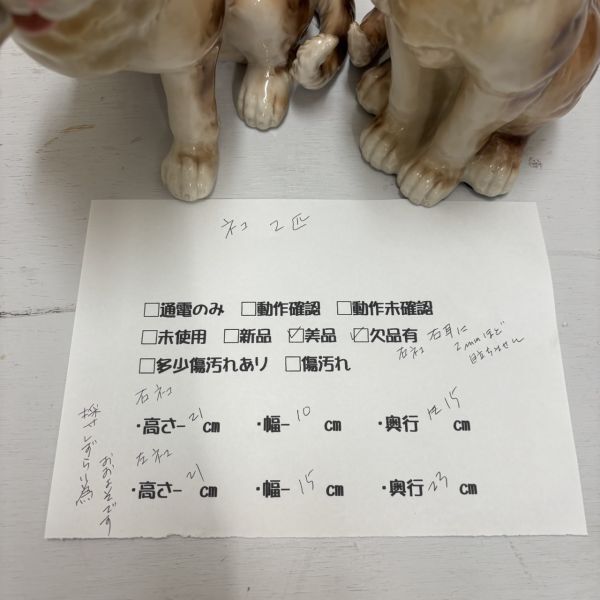 ネコ 2匹
□通電のみ □動作確認 □動作未確認
□未使用 □新品 ☑美品 ☑欠品有
左ネコ 右耳に
2mmほど
目立ちません
□多少傷汚れあり □傷汚れ
右ネコ
・高さ-21cm ・幅-10cm ・奥行15cm
左ネコ
・高さ-21cm ・幅-15cm ・奥行23cm
採寸しずらい為
おおよそです